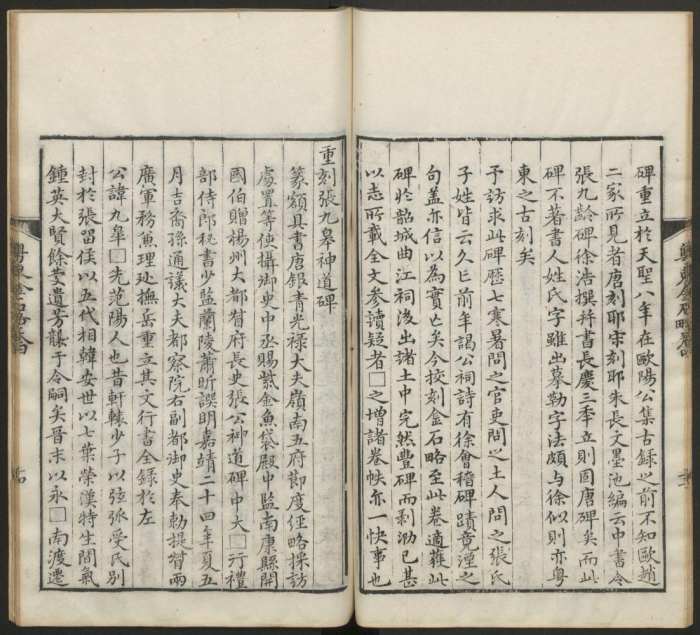 碑重立於天聖八年在歐陽公集古録之前不知歐趙
二家所見者唐刻耶宋刻耶朱長文墨池編云中書令
張九齡碑徐浩撰并書長慶三年立則固唐碑矣而此
碑不著書人姓氏字雖出摹勒字法頗與徐似則亦粤
東之古刻矣
予訪求此碑歷七寒暑問之官吏問之土人問之張氏
子姓皆云久亡前年謁公祠詩有徐會稽碑蹟竟湮之
句盖亦信以為實亡矣今挍刻金石略至此卷適蕤此
碑於韶城曲江祠後出諸土中完然豐碑而剥泐已甚
以志所載全文參讀疑者□之增諸卷帙亦一快事也
重刻張九皋神道碑
篆額具書唐銀青光禄大夫嶺南五府節度經略採訪
處置等使攝御史中丞賜紫金魚袋殿中監南康縣開
國伯贈楊州大都督府長史張公神道碑中大□行禮
部侍郎秘書少監蘭陵蕭昕譔明嘉靖二十四年夏五
月吉裔孫通議大夫都察院右副都御史奉勅提督兩
廣軍務兼理廵撫岳重立其文行書全録於左
公諱九皋□先范陽人也昔軒轅少子以弦弧受氏別
封於張留侯以五代相韓安世以七葉榮漢特生閒氣
鍾英大賢餘慶遺芳襲于令嗣矣晉末以永□南渡遷